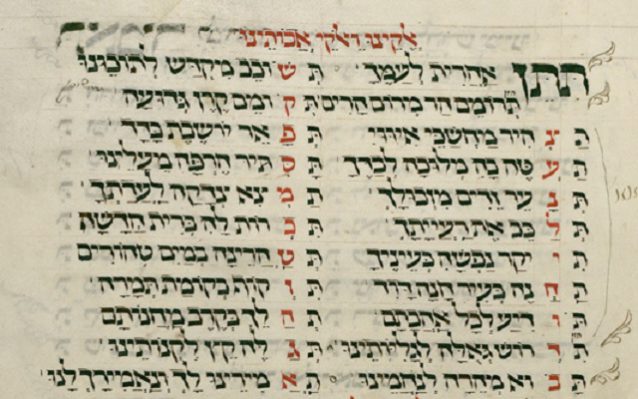 אקינו ואקי אבותינו
תתן אחרית לעמך תשובב מיקדש לתוכינו
תרומם הר מרום הרים תקומם קרן גדועה
תצהיר מחשכי אישוני תפאר יושבת בדד
תעטה בה מלוכה לבדך תסיר חרפה מעלינו
תנער זרים מגבולך תמציא צדקה לעדתך
תלבב את רעייתך תכרות לה ברית חדשה
תיקר נפשה בעיניך תטהרינה במים טהורים
תחנה בעיר חנה דוד קומת תמרה
תודיע לכל אהבתם תהלך בקרב מחנותם
תדרוש גאולה לגליותינו תגלה קץ לקנותינו
תבוא מהרה לנחמינו תאמירינו לך ונאמירך לנו